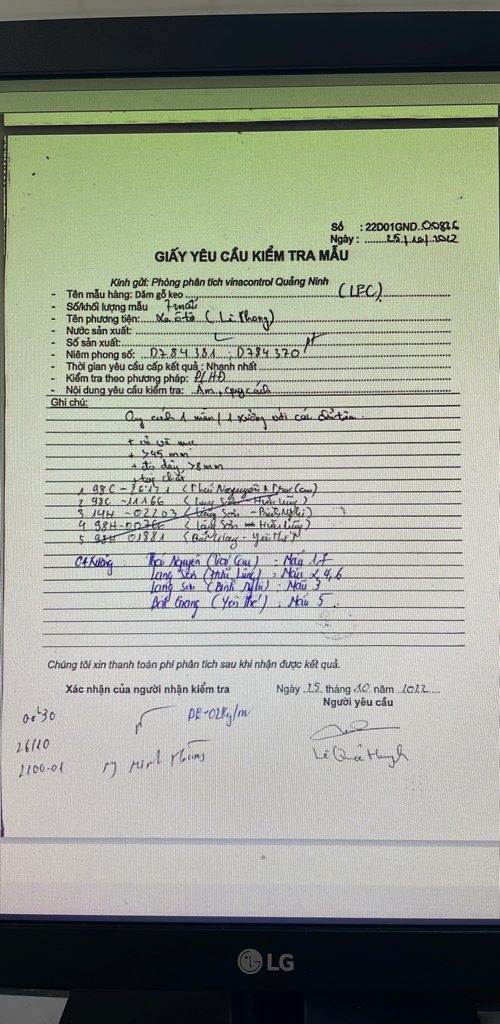 Số : 22D01GND.00826
Ngày : 25/10/2022
GIẤY YÊU CẦU KIỂM TRA MẪU
Kính gửi: Phòng phân tích vinacontrol Quảng Ninh
- Tên mẫu hàng: Dăm gỗ keo (LEC)
- Số/khối lượng mẫu 7 mẫu
- Tên phương tiện: Xe ôtô
- Nước sản xuất:
- Số sản xuất:
- Niêm phong số: D784381 ; D784370
- Thời gian yêu cầu cấp kết quả : Nhanh nhất
- Kiểm tra theo phương pháp: P/HĐ
- Nội dung yêu cầu kiểm tra: Ẩm, quy cách
Ghi chú:
Quy cách 1 mẫu / 1 xưởng với các chỉ tiêu
+ >45 mm
+ độ dày >8mm
+ tạp chất
1. 98C -
2. 98C - 11166 (Lạng Sơn - Hữu Lũng)
3. 14H - 02203 (Lạng Sơn - Bình Nghi)
4. 98H-00766 (Lạng Sơn Hữu Lũng)
5. 98H 01881 (Bắc Giang - Yên Thế)
04 xưởng : Thái Nguyên (Trại Cau) : Mẫu 1,7
Lạng Sơn (Hữu Lũng) : Mẫu 2,4,6
Lạng Sơn (Bình Nghi) : Mẫu 3
Bắc Giang (Yên Thế) : Mẫu 5
Chúng tôi xin thanh toán phí phân tích sau khi nhận được kết quả.
Xác nhận của người nhận kiểm tra
Ngày 25 tháng 10 năm 2022
Người yêu cầu
00h30
DE-02Kg/m
26/10
2100-01
LG